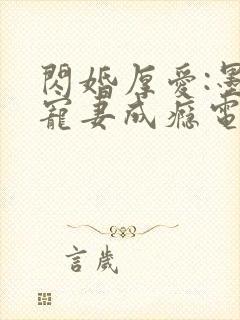 閃婚厚愛:墨
寵妻成癮電
言歲